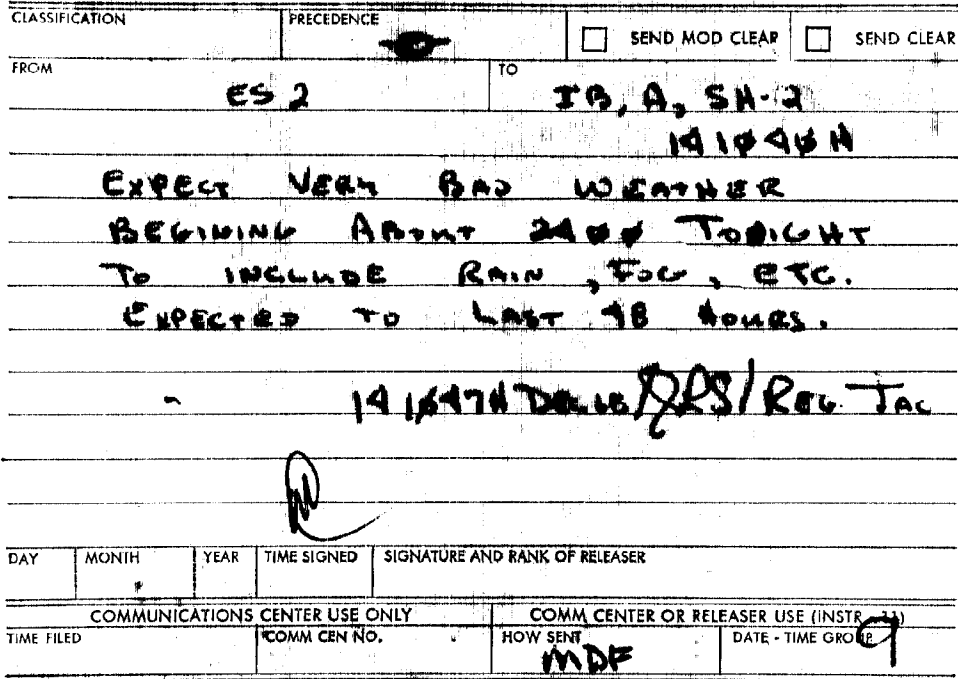 CLASSIFICATION PRECEDENCE SEND MOD CLEAR SEND CLEAR
FROM TO
ES 2 IB, A, SH-2
141040H
EXPECT VERY BAD WEATHER
BEGINING ABOUT 2400 TONIGHT
TO INCLUDE RAIN, FOG, ETC.
EXPECTED TO LAST 48 HOURS.
141047H REG. TAC
DAY MONTH YEAR TIME SIGNED SIGNATURE AND RANK OF RELEASER
COMMUNICATIONS CENTER USE ONLY COMM CENTER OR RELEASER USE (INSTR
TIME FILED COMM CEN NO. HOW SENT DATE - TIME GROUP
MDF 9